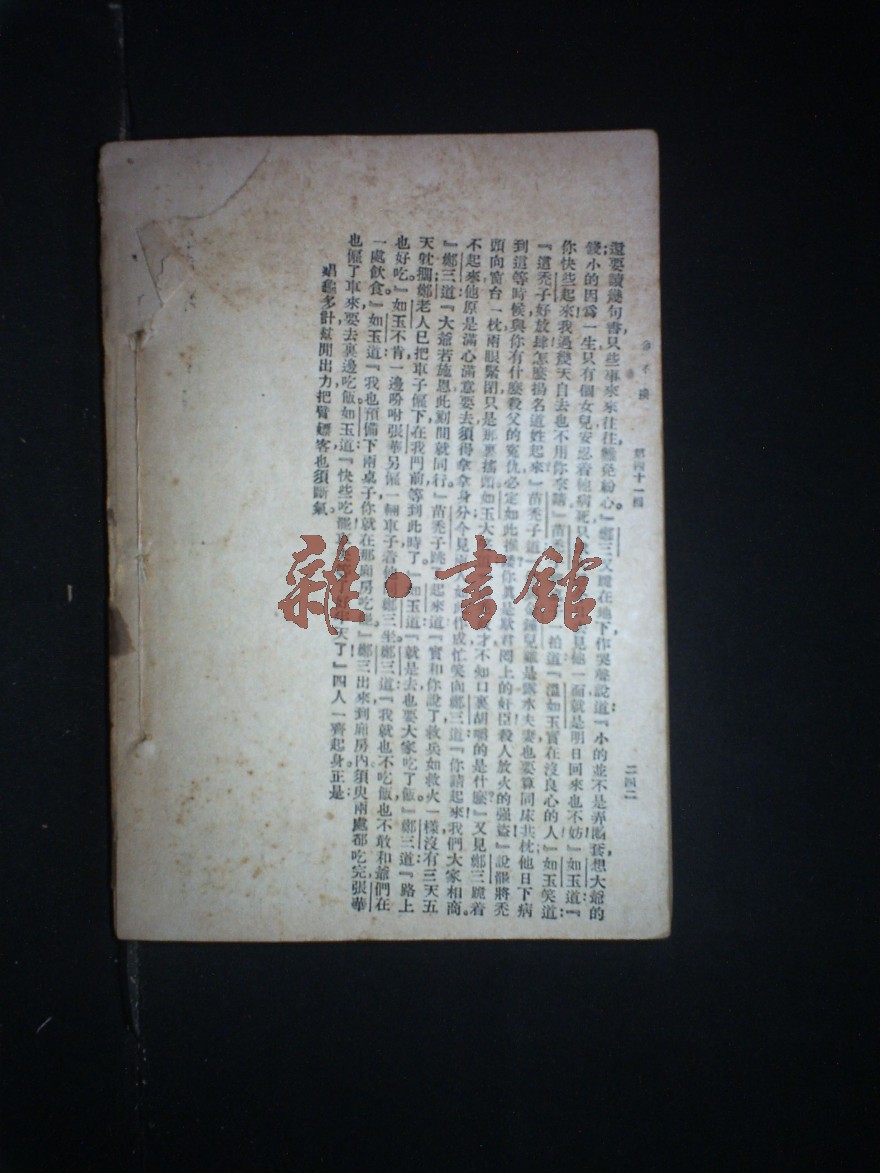 第四十一回
二四二
還要讀幾句書只些事來來往往難免紛心』鄭三又跪在地下作哭聲說道『小的並不是弄圈套想大爺的
錢小的因爲一生只有個女兒安忍着他病死只 見他一面就是明日回來也不妨』如玉道『
你快些起來我過幾天自去也不用你來請』苗禿 一拍道『溫如玉實在沒良心的人』如玉笑道
『這禿子好放肆怎麼揚名道姓起來』苗禿子道 鐘兒雖是露水夫妻也要算同床共枕他日下病
到這等時候與你有什麼殺父的寃仇必定如此推 你眞是欺君罔上的奸臣殺人放火的强盜』說罷將禿
頭向窗台一枕兩眼緊閉只是那裏搖頭如玉大 才不知口裏胡嚼的是什麼』又見鄭三跪着
不起來他原是滿心滿意要去須得拿拿身分今見 人如此作成忙笑向鄭三道『你請起來我們大家相商
』鄭三道『大爺若施恩此刻間就同行』苗禿子跳 起來道『實和你說了救兵如救火一樣沒有三天五
天躭擱鄭老人已把車子僱下在我門前等到此時了』如玉道『就是去也要大家吃了飯』鄭三道『路上
也好吃』如玉不肯一邊吩咐張華另僱一輛車子着 鄭三坐鄭三道『我就也不吃飯也不敢和爺們在
一處飲食』如玉道『我也預備下兩桌子你就在那廂房吃罷』鄭三出來到廂房內須臾兩處都吃完張華
也僱了車來要去裏邊吃飯如玉道『快些吃罷 等了好半天了』四人一齊起身正是
娼龜多計幫閒出力把臂嫖客也須斷氣
雜·書館